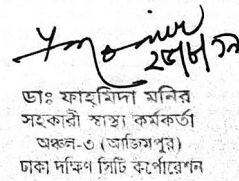 ২৮/৮/১৯
ডাঃ ফাহমিদা মনির
সহকারী স্বাস্থ্য কর্মকর্তা
অঞ্চল-৩ (আজিমপুর)
ঢাকা দক্ষিণ সিটি কর্পোরেশন